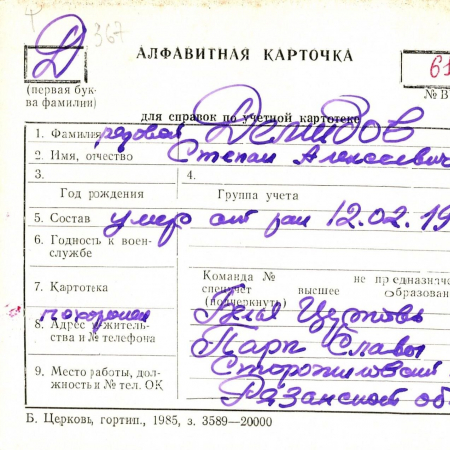 367
Д
АЛФАВИТНАЯ КАРТОЧКА
61
(первая бук-
ва фамилии)
№ В
для справок по учетной картотеке
1. Фамилия рядовой Демидов
2. Имя, отчество Степан Алексеевич
3.
4.
Год рождения
Группа учета
5. Состав умер от ран 12.02.19
6. Годность к воен-
службе
7. Картотека
Команда № не предназначе
спецучет высшее образован
(подчеркнуть)
похоронен Белая Церковь
8. Адрес жительь-
ства и № телефона
Парк Славы
9. Место работы, дол-
жность и № тел. ОК
Сторожиловский
Рязанской об
Б. Церковь, гортип., 1985, з. 3589—20000